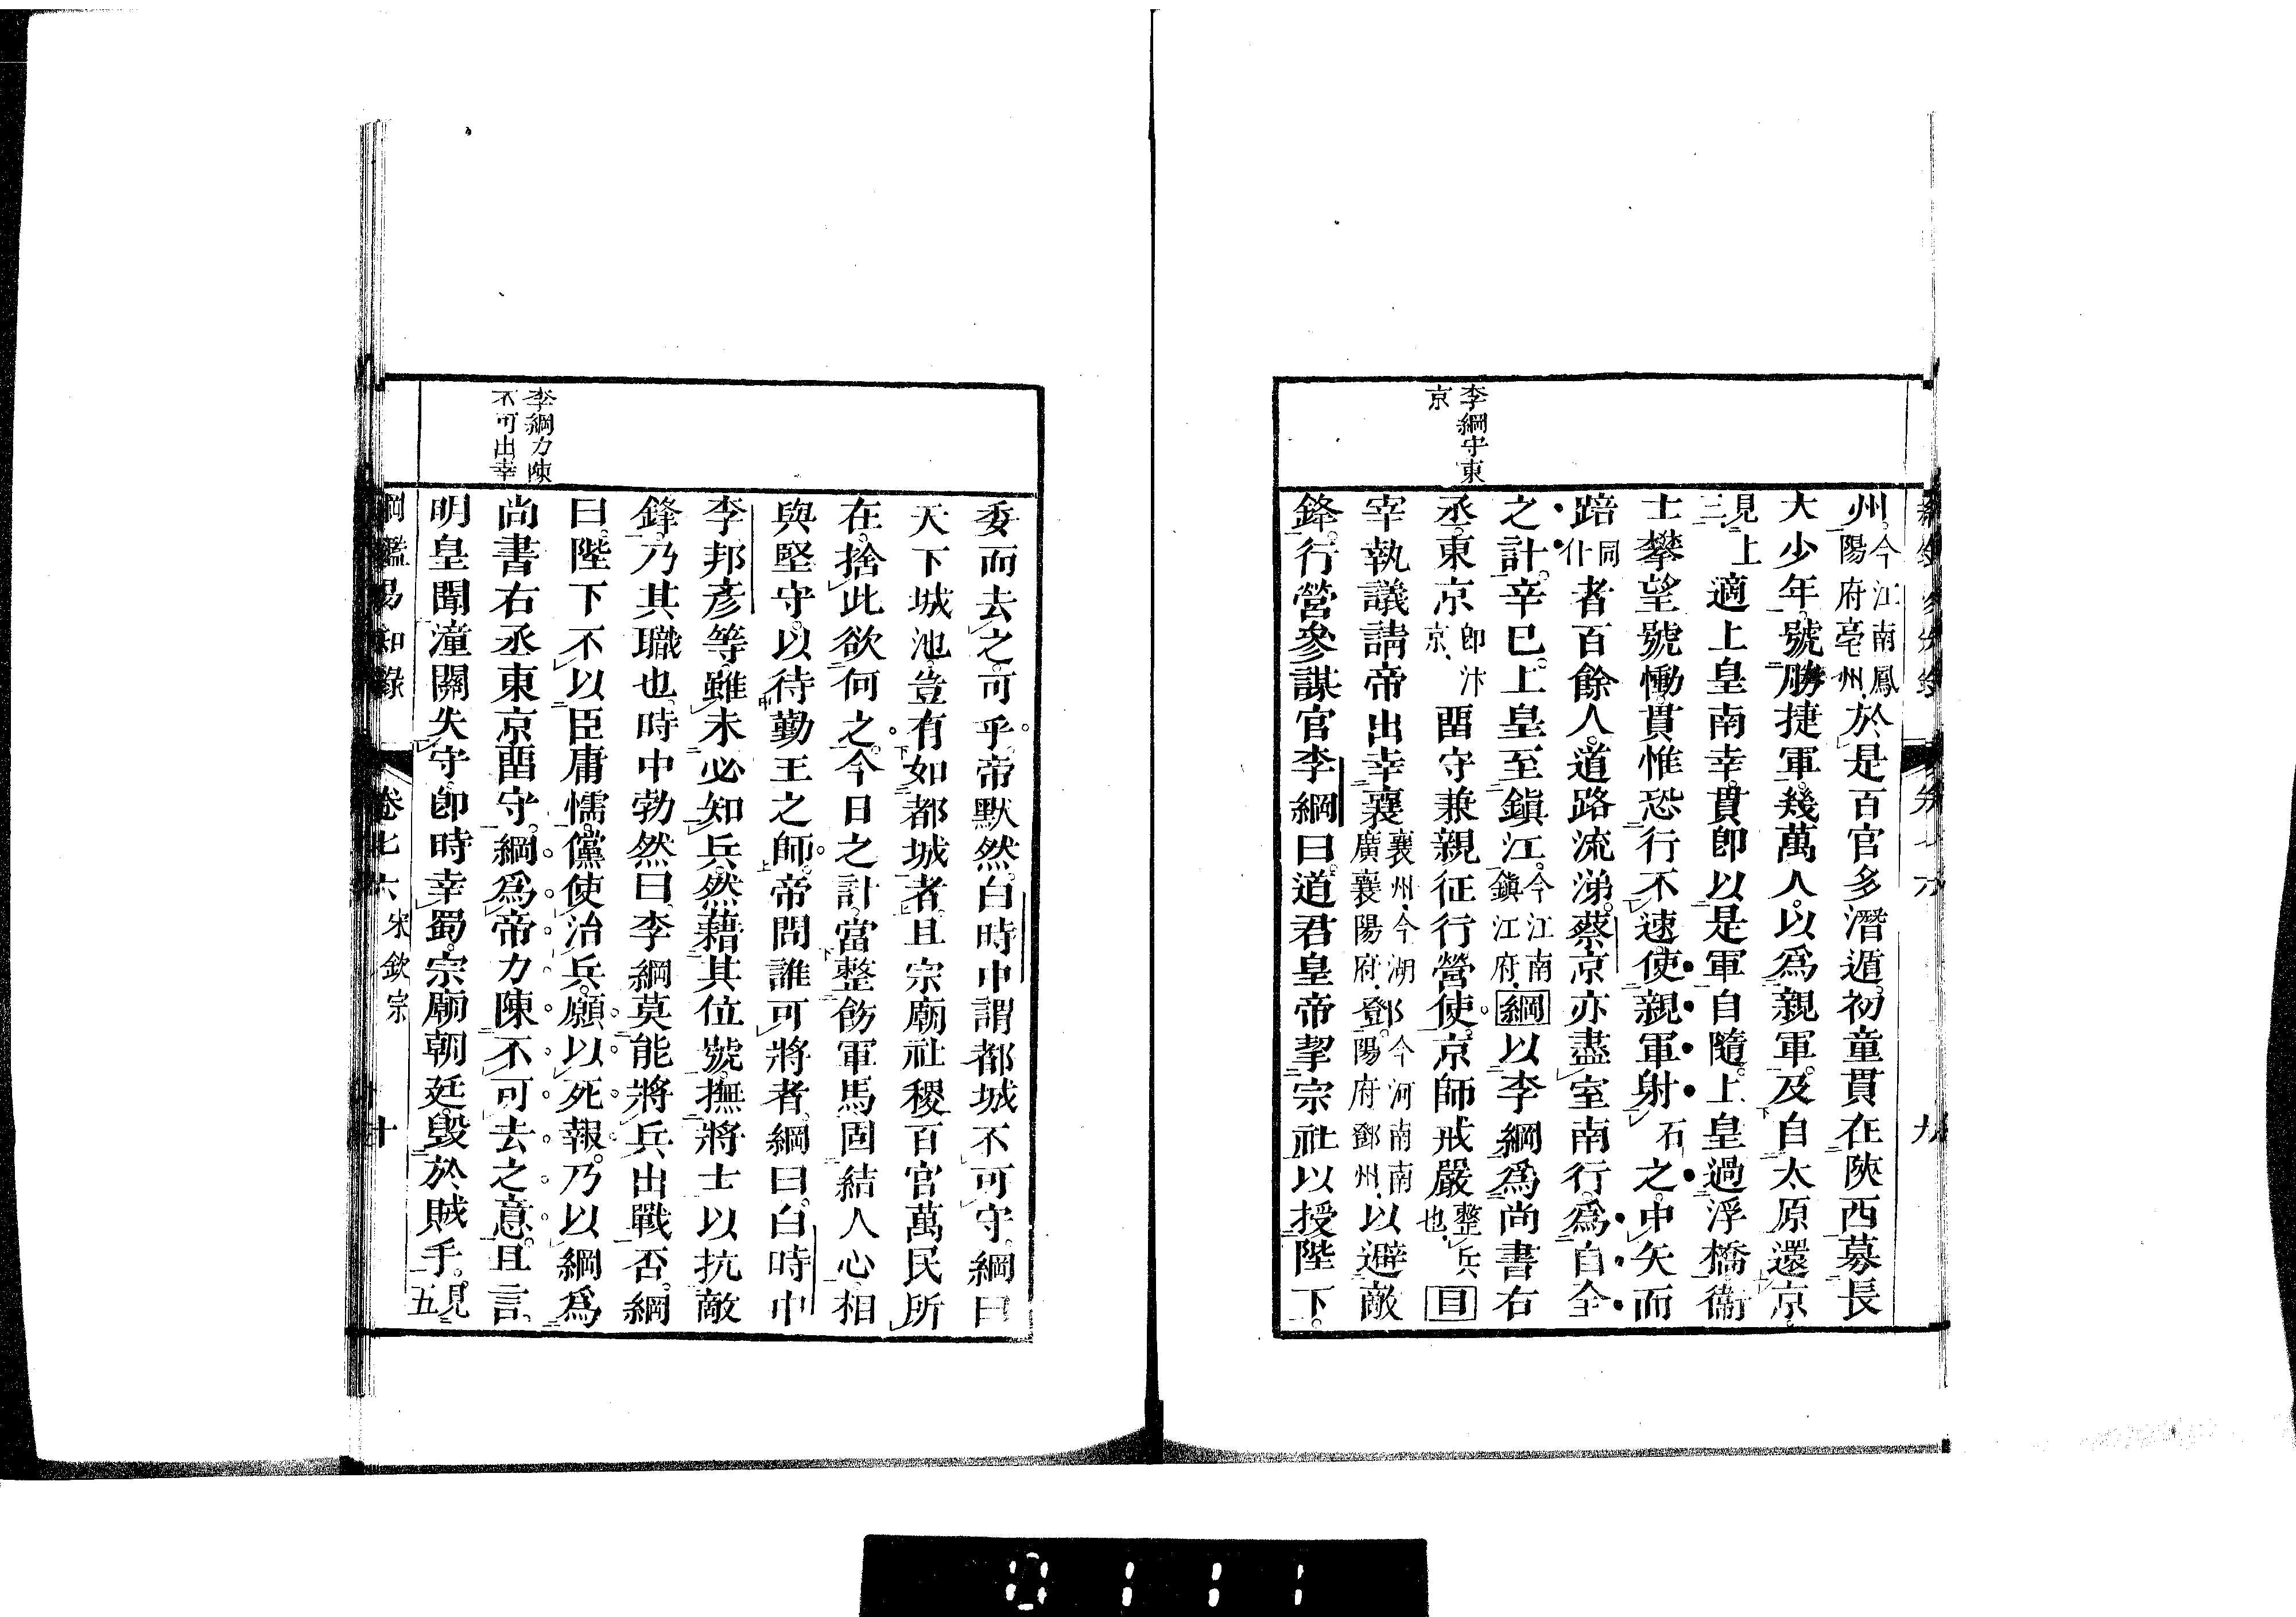 李綱守東
京
州。今江南鳳陽府亳州。於是百官多潛遁。初童貫在陝西募長
大少年。號勝捷軍。幾萬人。以爲親軍。及自太原還京。
見上三。適上皇南幸。貫卽以是軍自隨。上皇過浮橋。衞
士攀望號慟。貫惟恐行不速。使親軍射石之。中矢而
踣同仆者百餘人。道路流涕。蔡京亦盡室南行。爲自全
之計。辛巳。上皇至鎭江。今江南鎭江府。綱以李綱爲尚書右
丞。東京卽汴京。畱守兼親征行營使。京師戒嚴整兵也。目
宰執議請帝出幸襄襄州。今湖廣襄陽府。鄧。今河南南陽府鄧州。以避敵
鋒。行營參謀官李綱曰。道君皇帝挈宗社以授陛下。
委而去之。可乎。帝默然。白時中謂都城不可守。綱曰
天下城池。豈有如都城者。且宗廟社稷百官萬民所
在。捨此欲何之。今日之計。當整飭軍馬。固結人心。相
與堅守。以待勤王之師。帝問誰可將者。綱曰。白時中
李邦彥等。雖未必知兵。然藉其位號。撫將士以抗敵
鋒。乃其職也。時中勃然曰。李綱莫能將兵出戰否。綱
曰。陛下不以臣庸懦。儻使治兵。願以死報。乃以綱爲
尚書右丞東京畱守。綱爲帝力陳不可去之意。且言。
明皇聞潼關失守。卽時幸蜀。宗廟朝廷。毀於賊手。見五
李綱力陳
不可出幸
綱鑑易知錄 卷七六 宋欽宗 十
0111